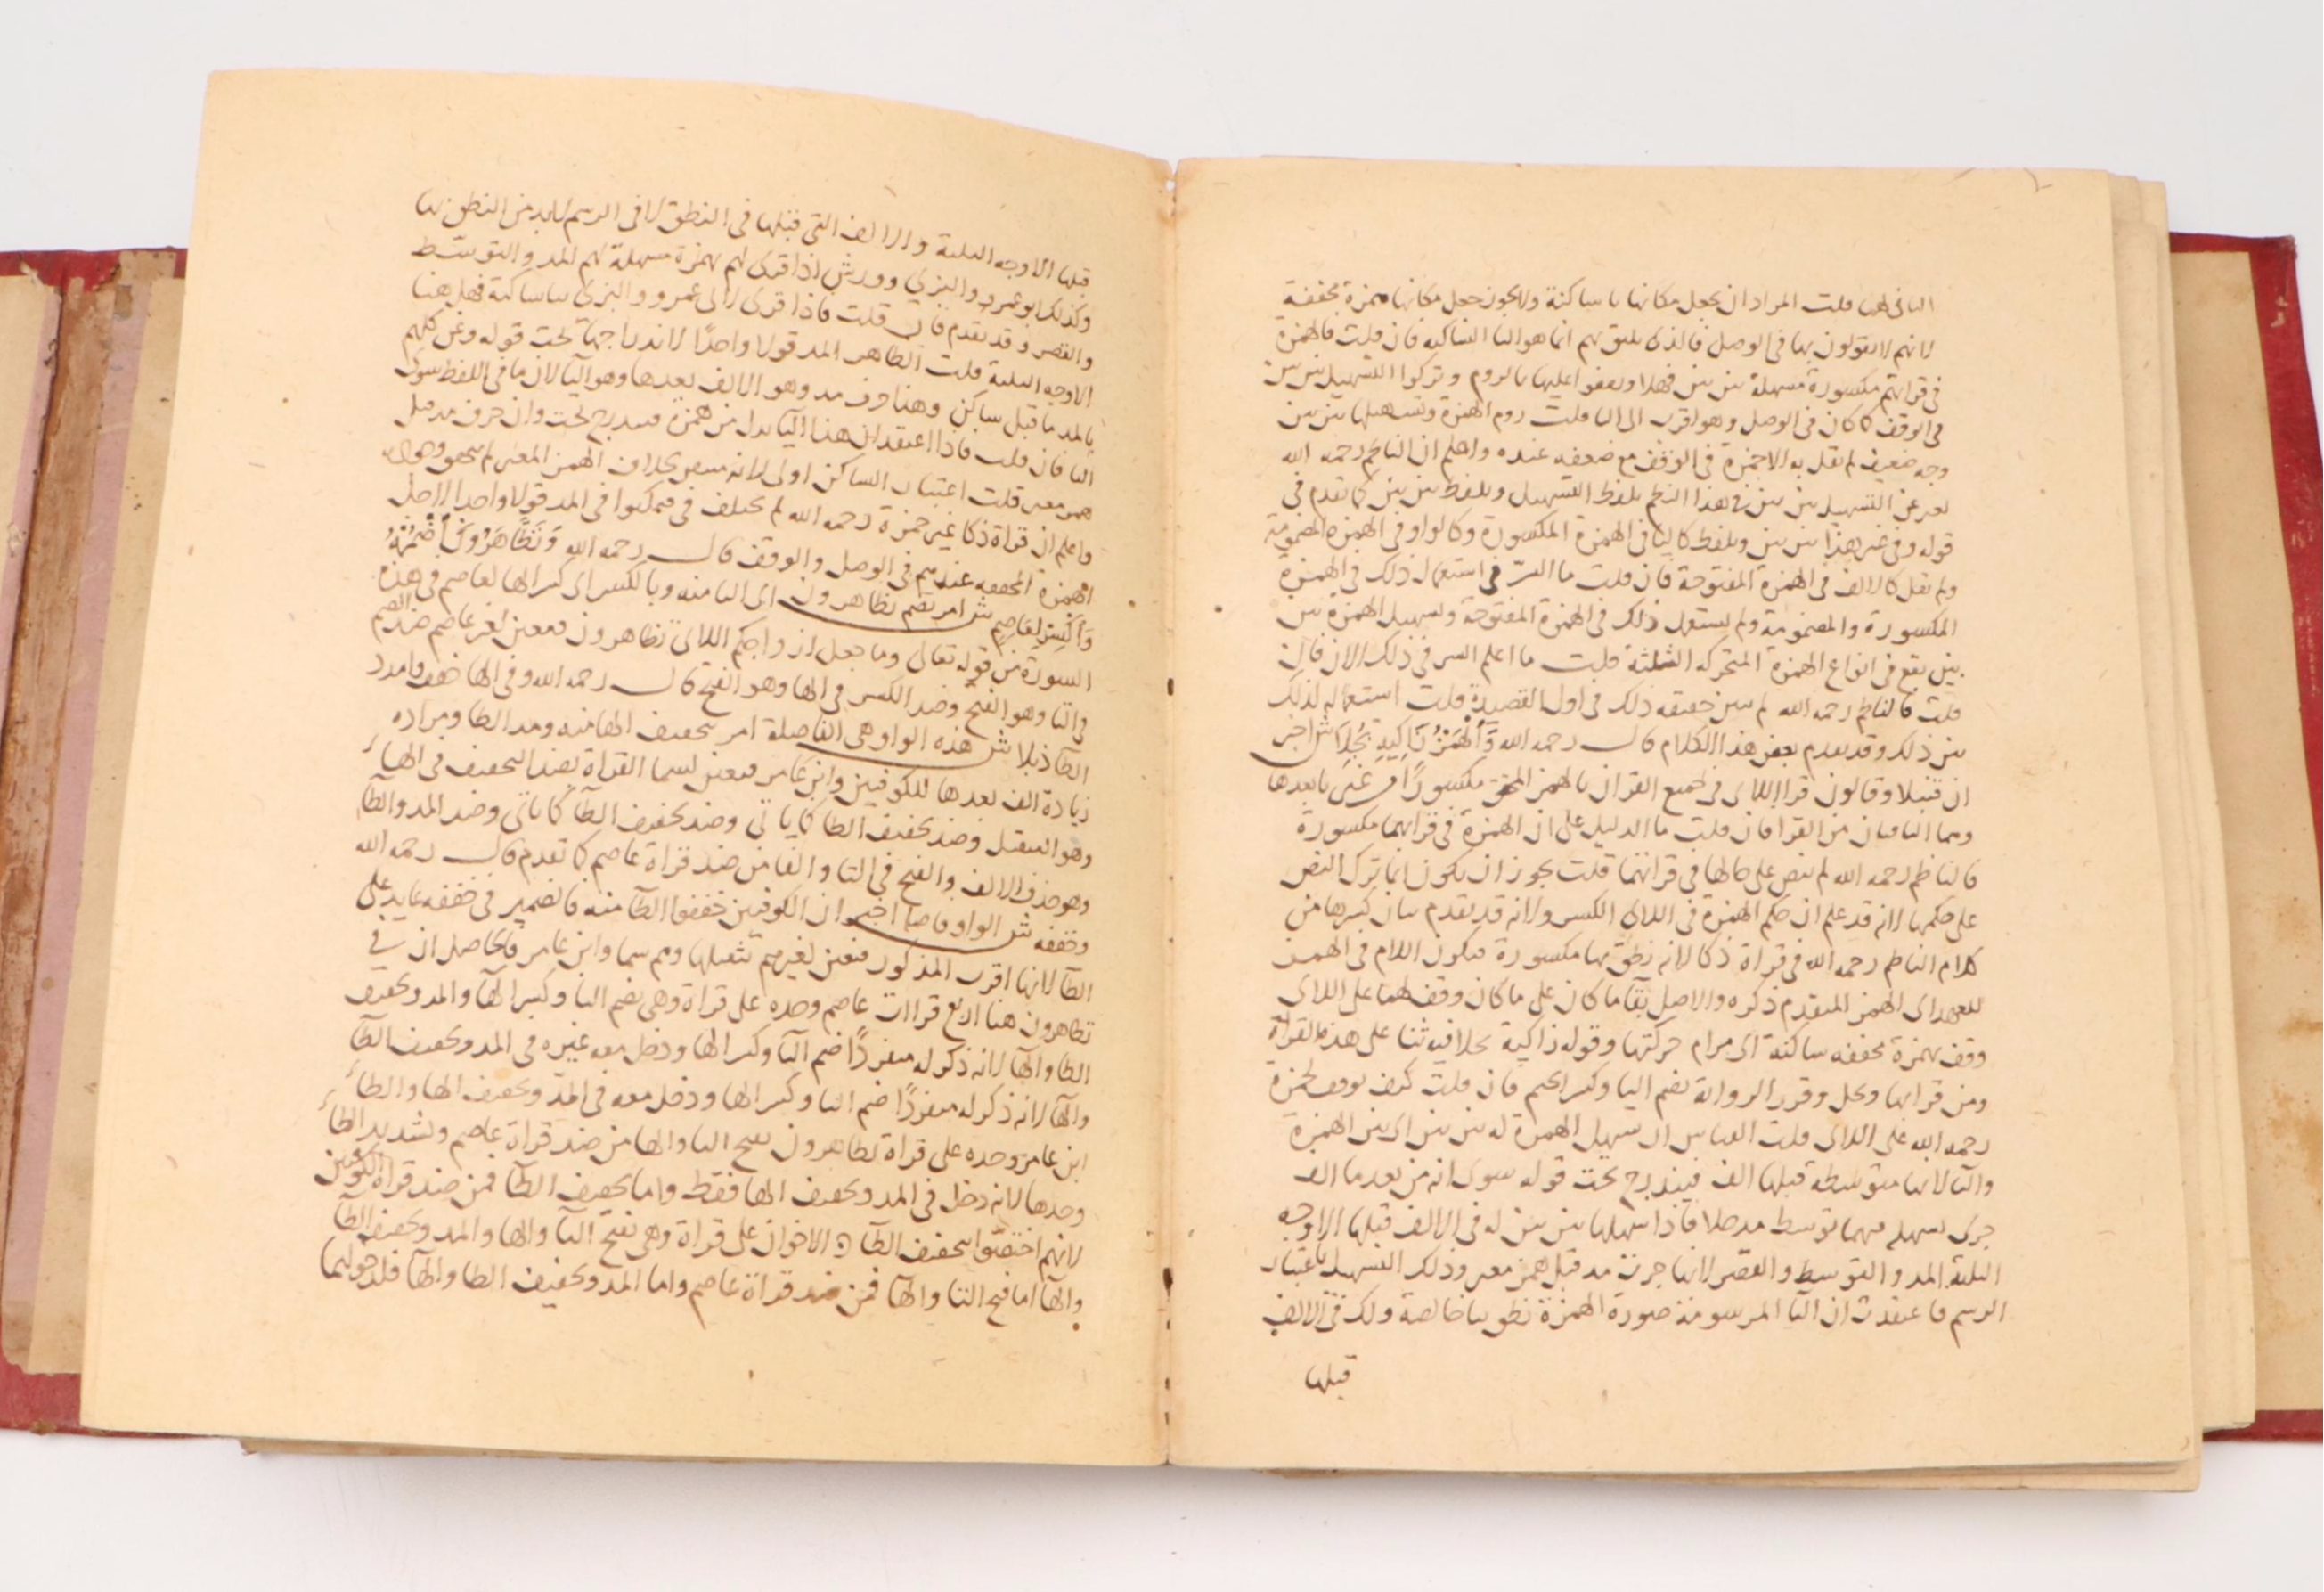 الباقي لهما قلت المراد ان يجعل مكانها يا ساكنة ولا يجوز جعل مكانها همزة مخففة
لانهم لا يقولون بها في الوصل فالذي يليق بهم انما هو اليا الساكنه فان قلت فالهمزة
في قراتهم مكسورة مسهلة بين بين فهلا وقفوا عليها بالروم وتركوا التسهيل بين بين
في الوقف كما كان في الوصل وهو اقرب الى اليا قلت روم الهمزة وتسهيلها بين بين
وجه ضعيف لم يقل به الا حمزة في الوقف مع ضعفه عنده واعلم ان الناظم رحمه الله
يعبر عن التسهيل بين بين في هذا النظم بلفظ التسهيل وبلفظ بين بين كما تقدم في
قوله وفي غير هذا بين بين وبلفظ كاليا في الهمزة المكسورة وكالواو في الهمزة المضمومة
ولم يقل كالالف في الهمزة المفتوحة فان قلت ما السر في استعمال ذلك في الهمزة
المكسورة والمضمومة ولم يستعمل ذلك في الهمزة المفتوحة وتسهيل الهمزة بين
بين يقع في انواع الهمزة المتحركه الثلثة قلت ما اعلم السر في ذلك الان فان
قلت فالناظم رحمه الله لم يبين حقيقه ذلك في اول القصيدة قلت استعماله لذلك
بين ذلك وقد تقدم بعض هذا الكلام قال رحمه الله وَالْهَمْزُ زَاكِيهِ بُجِّلَا ش اخبر
ان قنبلا وقالون قرا اللاى في جميع القران بالهمز المحقق مكسورًا من غير يا بعدها
وهما الباقيان من القرا فان قلت ما الدليل على ان الهمزة في قراتهما مكسورة
فالناظم رحمه الله لم ينص على حالها في قراتهما قلت يجوز ان يكون انما ترك النص
على حكمها لانه قد علم ان حكم الهمزة في اللاى الكسر ولانه قد تقدم بيان كسرها من
كلام الناظم رحمه الله في قراة ذكا لانه نطق بها مكسورة فيكون اللام في الهمز
للعهد اى الهمز المتقدم ذكره والاصل بقا ما كان على ما كان وقف لهما على اللاى
وقف بهمزة محققه ساكنة الى مرام حركتها وقوله زاكية بجلا فيه ثنا على هذه القراة
ومن قرا بها وبجل وقرر الرواية بضم البا وكسر الجيم فان قلت كيف يوقف لحمزة
رحمه الله على اللاى قلت القياس ان تسهيل الهمزة له بين بين اى بين الهمزة
واليا لانها متوسطه قبلها الف فيندرج تحت قوله سوى انه من بعد ما الف
جرى يسهله مهما توسط مدخلا فاذا سهلها بين بين له في الالف قبلها الاوجه
الثلثة المد والتوسط والقصر لانها حرف مد قبل همز مغير وذلك التسهيل باعتبار
الرسم فاعتقدت ان اليا المرسومة صورة الهمزة نطق بيا خالصة ولك في الالف
قبلها
قبلها الاوجه الثلثة والالف التي قبلها في النطق لا في الرسم لابد من النطق بها
وكذلك ابو عمرو والبزي وورش اذا قرى لهم بهمزة مسهلة لهم المد والتوسط
والقصر وقد تقدم فان قلت فاذا قرى لابى عمرو والبزى بيا ساكنة فهل هنا
الاوجه الثلثة قلت الظاهر المد قولا واحدًا لاندراجها تحت قوله وعن كلهم
بالمد ما قبل ساكن وهنا حرف مد وهو الالف بعدها وهو اليا لان ما في اللفظ سوى
اليا فان قلت فاذا اعتقد ان هذا اليا بدل من همزة فيندرج تحت وان حرف مد قبل
همز مغير قلت اعتبار الساكن اولى لانه
واعلم ان قراة ذكا غير حمزة رحمه الله لم يختلف في مكنوا في المد قولا واحدا لاجل
الهمزة المحققه عندهم في الوصل والوقف قال رحمه الله وَتَظَّاهَرُونَ اضْمُمْهُ
وَاكْسِرْ لِعَاصِمٍ ش امر بضم تظاهرون اى التا منه وبالكسر اى كسر الها لعاصم في هذه
السورة من قوله تعالى وما جعل ازواجكم اللاى تظاهرون فتعين لغير عاصم ضد الضم
في التا وهو الفتح وضد الكسر في الها وهو الفتح قال رحمه الله وفي الها خفف وامدد
الظا ذبلا ش هذه الواو هي الفاصلة امر بتخفيف الها منه ومد الظا ومراده
زيادة الف بعدها للكوفيين وابن عامر فتعين لسما القراة بضد التخفيف في الهاء
وهو التثقيل وضد تخفيف الظا كما ياتى وضد تخفيف الظا كما ياتى وضد المد والظا
وهو حذف الالف والفتح في التا والها من ضد قراة عاصم كما تقدم قال رحمه الله
وخففه ش الواو فاصلا اخبر ان الكوفيين خففوا الظا منه فالضمير في خففه عايد على
الظا لانها اقرب المذكور فتعين لغيرهم تثقيلها وهم سما وابن عامر فالحاصل ان في
تظاهرون هنا اربع قراات عاصم وحده على قراة وهى بضم التا وكسر الها والمد وتخفيف
الظا والها لانه ذكر له منفردًا ضم التا وكسر الها ودخل معه غيره في المد وتخفيف الظا
والها لانه ذكر له منفردًا ضم التا وكسر الها ودخل معه في المد وتخفيف الها والظاء
ابن عامر وحده على قراة تظاهرون بفتح التا والها من ضد قراة عاصم وتشديد الظاء
وحدها لانه دخل في المد وتخفيف الها فقط واما تخفيف الظا فمن ضد قراة الكوفيين
لانهم اختصوا بتخفيف الظا الاخوان على قراة وهى بفتح التا والها والمد وتخفيف الظا
والها اما فتح التا والها فمن ضد قراة عاصم واما المد وتخفيف الظا والها فلدخولهما